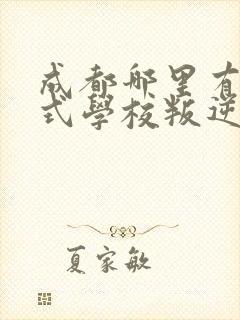 成都哪里有
式學校叛逆
夏家敏